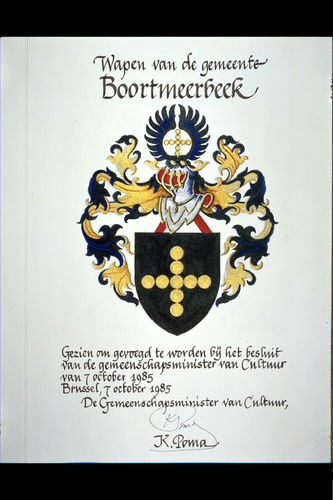 Wapen van de gemeente
Boortmeerbeek
Gezien om gevoegd te worden bij het besluit
van de gemeenschapsminister van Cultuur
van 7 october 1985
Brussel, 7 october 1985
De Gemeenschapsminister van Cultuur,
K. Poma